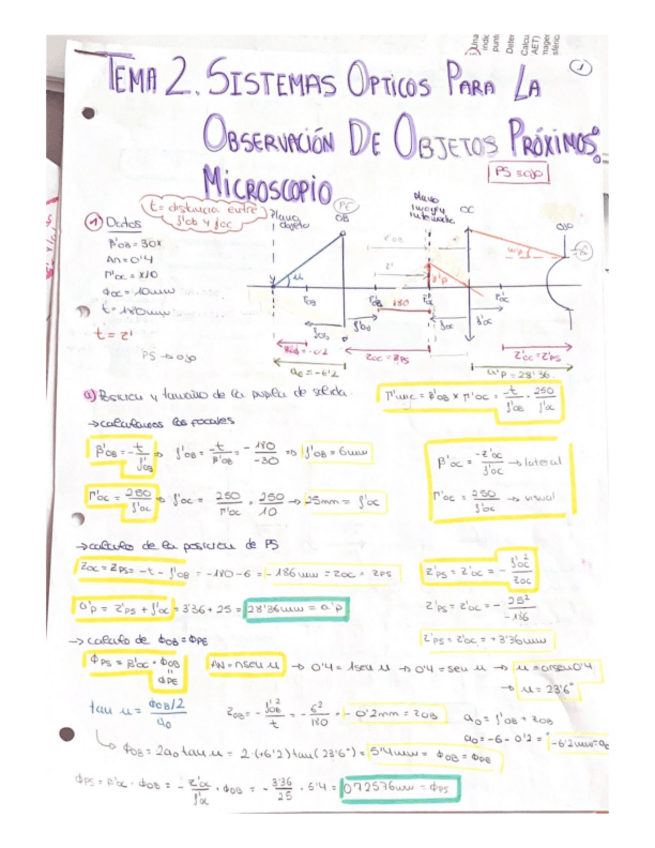 TEMA 2. SISTEMAS OPTICOS PARA LA
OBSERVACIÓN DE OBJETOS PRÓXIMOS:
MICROSCOPIO
1
PS → ojo
t = distancia entre
f'ob y foc
1) Datos
β'OB = 30x
AN = 0'4
Γ'oc = x10
Φoc = 10mm
t = 180mm
t = z'
PS → ojo
Plano
objeto
OB
PE
plano
imagen
intermedia
OC
ojo
u
180
zoc = zPS
z'oc = z'PS
a0 = -6'2
a'p = 28'36
a) Posición y tamaño de la pupila de salida.
→ calculamos las focales
Γ'mic = β'OB × Γ'oc = -t/f'OB · 250/f'oc
β'OB = -t/f'OB → f'OB = -t/β'OB = -180/-30 ⇒ f'OB = 6mm
β'oc = -z'oc/f'oc → lateral
Γ'oc = 250/f'oc → f'oc = 250/Γ'oc = 250/10 → 25mm = f'oc
Γ'oc = 250/f'oc → visual
→ calculo de la posición de PS
zoc = zPS = -t - f'OB = -180-6 = -186mm = zoc = zPS
z'PS = z'oc = - f'oc²/zoc
a'p = z'PS + f'oc = 3'36 + 25 = 28'36mm = a'p
z'PS = z'oc = - 25²/-186
z'PS = z'oc = +3'36mm
→ calculo de ΦOB = ΦPE
ΦPS = β'oc · ΦOB
ΦPE
AN = n sen u → 0'4 = 1 sen u → 0'4 = sen u → u = arcsen 0'4
→ u = 23'6°
tan u = ΦOB/2 / a0
zOB = - f'OB²/t = - 6²/180 = -0'2mm = zOB
a0 = f'OB + zOB
a0 = -6 - 0'2 = -6'2mm = a0
ΦOB = 2a0 tan u = 2·(+6'2) tan(23'6°) = 5'4mm = ΦOB = ΦPE
ΦPS = β'oc · ΦOB = - z'oc/f'oc · ΦOB = - 3'36/25 · 5'4 = 0'72576mm = ΦPS